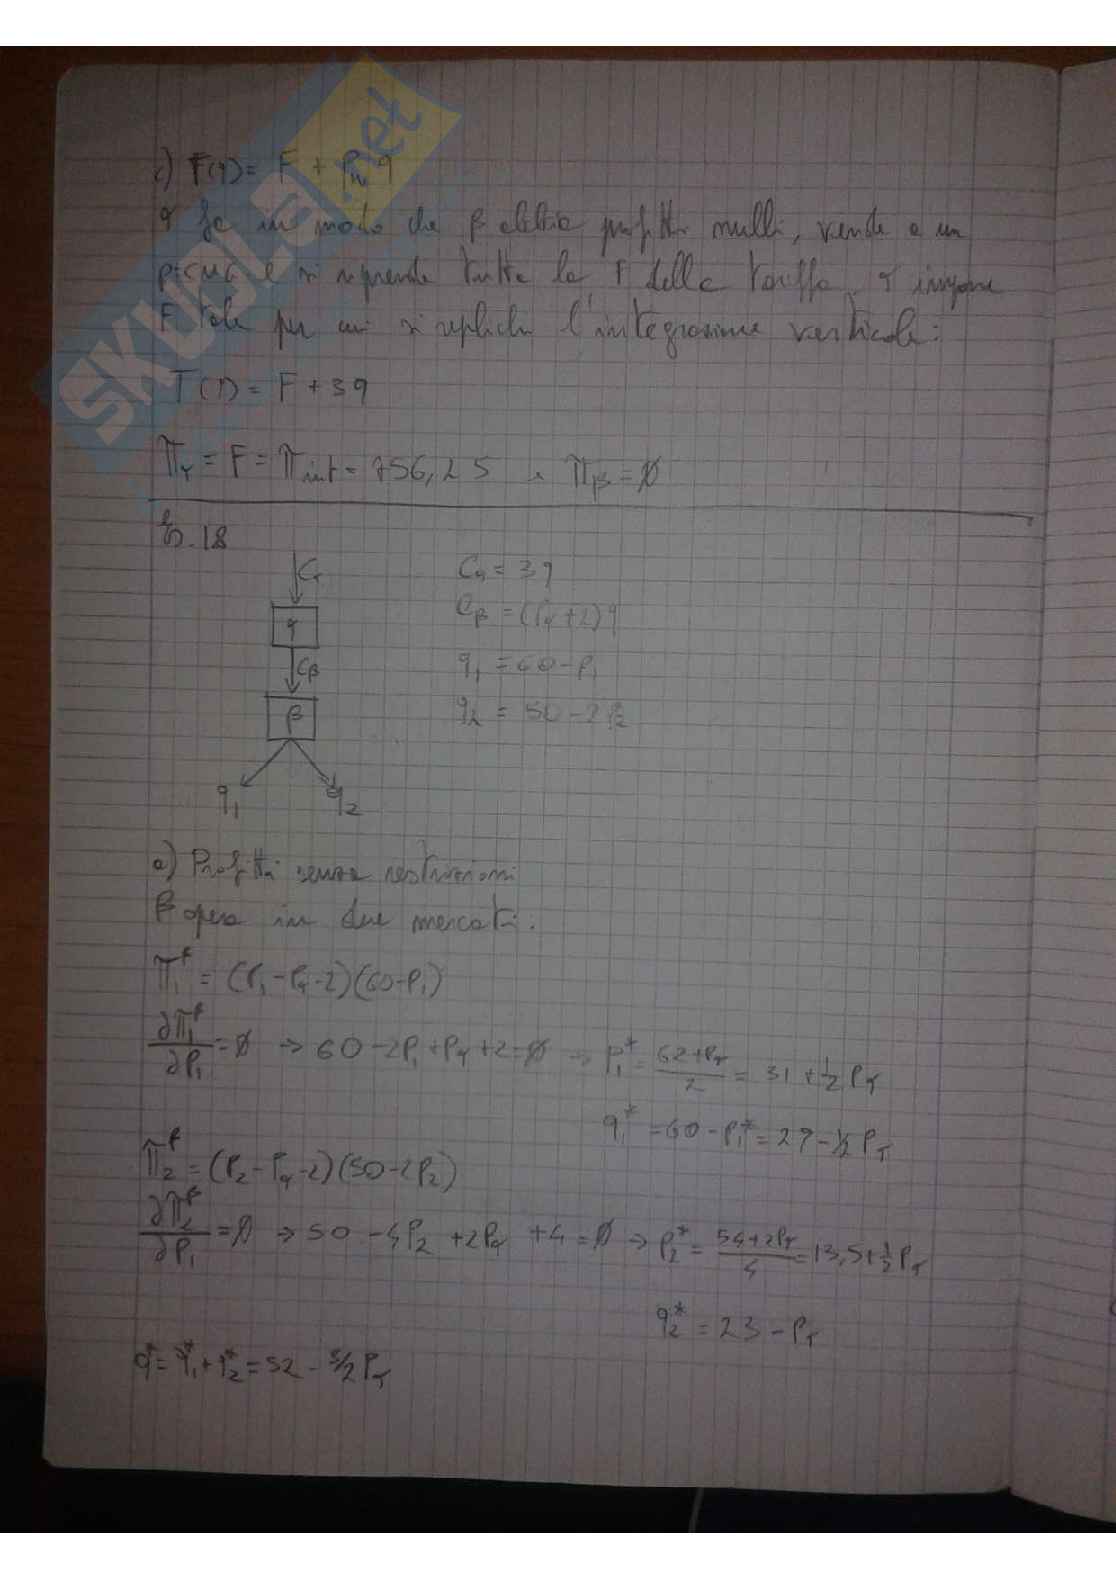 c) F(q) = F + Pw q
γ fa in modo che β abbia profitti nulli, vende a un
p=cma e si riprende tutta la F della tariffa. γ impone
F tale per cui si replichi l'integrazione verticale:
T(q) = F + 3q
πγ = F = πint = 756,25 e πβ = ∅
Es. 18
Cγ
Cγ = 3q
γ
Cβ = (Pγ+2)q
Cβ
q1 = 60 - P1
β
q2 = 50 - 2P2
q1 q2
a) Profitti senza restrizioni
β opera in due mercati:
π1^β = (P1 - Pγ - 2)(60 - P1)
∂π1^β/∂P1 = ∅ → 60 - 2P1 + Pγ + 2 = ∅ → P1* = (62 + Pγ)/2 = 31 + 1/2 Pγ
q1* = 60 - P1* = 29 - 1/2 Pγ
π2^β = (P2 - Pγ - 2)(50 - 2P2)
∂π2^β/∂P1 = ∅ → 50 - 4P2 + 2Pγ + 4 = ∅ → P2* = (54 + 2Pγ)/4 = 13,5 + 1/2 Pγ
q2* = 23 - Pγ
q* = q1* + q2* = 52 - 3/2 Pγ
SKUOLA.net